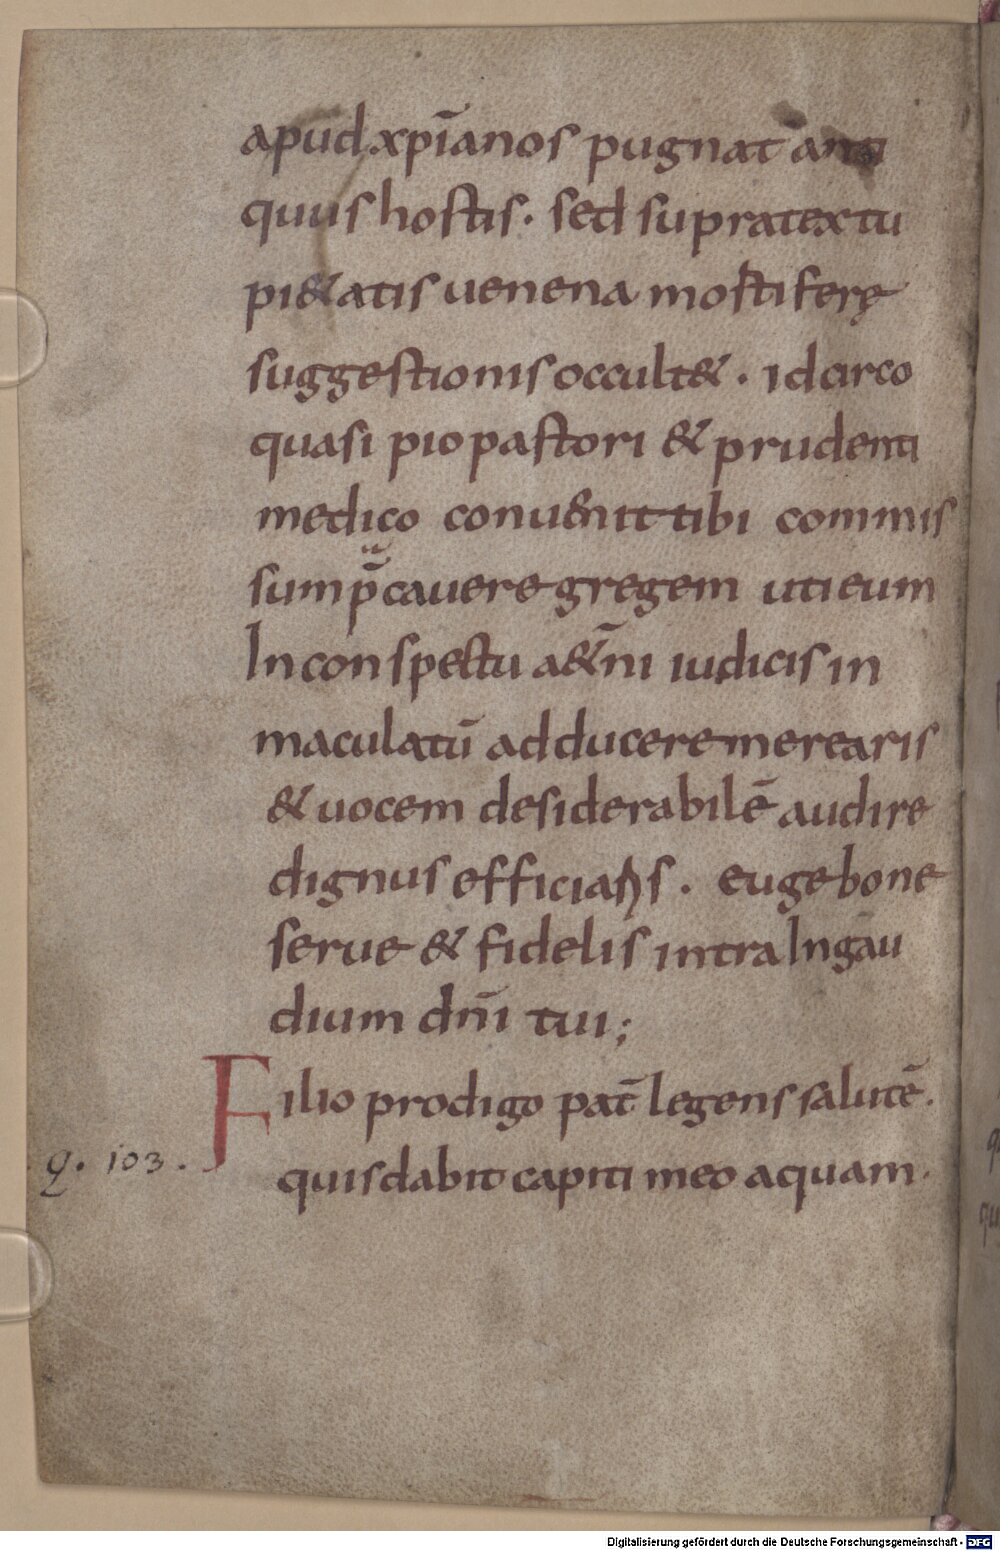 apud xp̄ianos pugnat anti
quus hostis. sed su pratextu
pi&atis uenena mostiferę
suggestionis occult&. idcirco
quasi pio pastori & prudenti
medico conuenit tibi commis
sum p̄cauere gregem uti eum
In conspectu a&ñi iudicis in
maculatū adducere merearis
& uocem desiderabilē audire
dignus efficiaris. euge bone
serue & fidelis intra In gau
dium dñi tui;
Filio prodigo pat̄ legens salutē.
quis dabit capiti meo aquam.
q. 103.
Digitalisierung gefördert durch die Deutsche Forschungsgemeinschaft - DFG